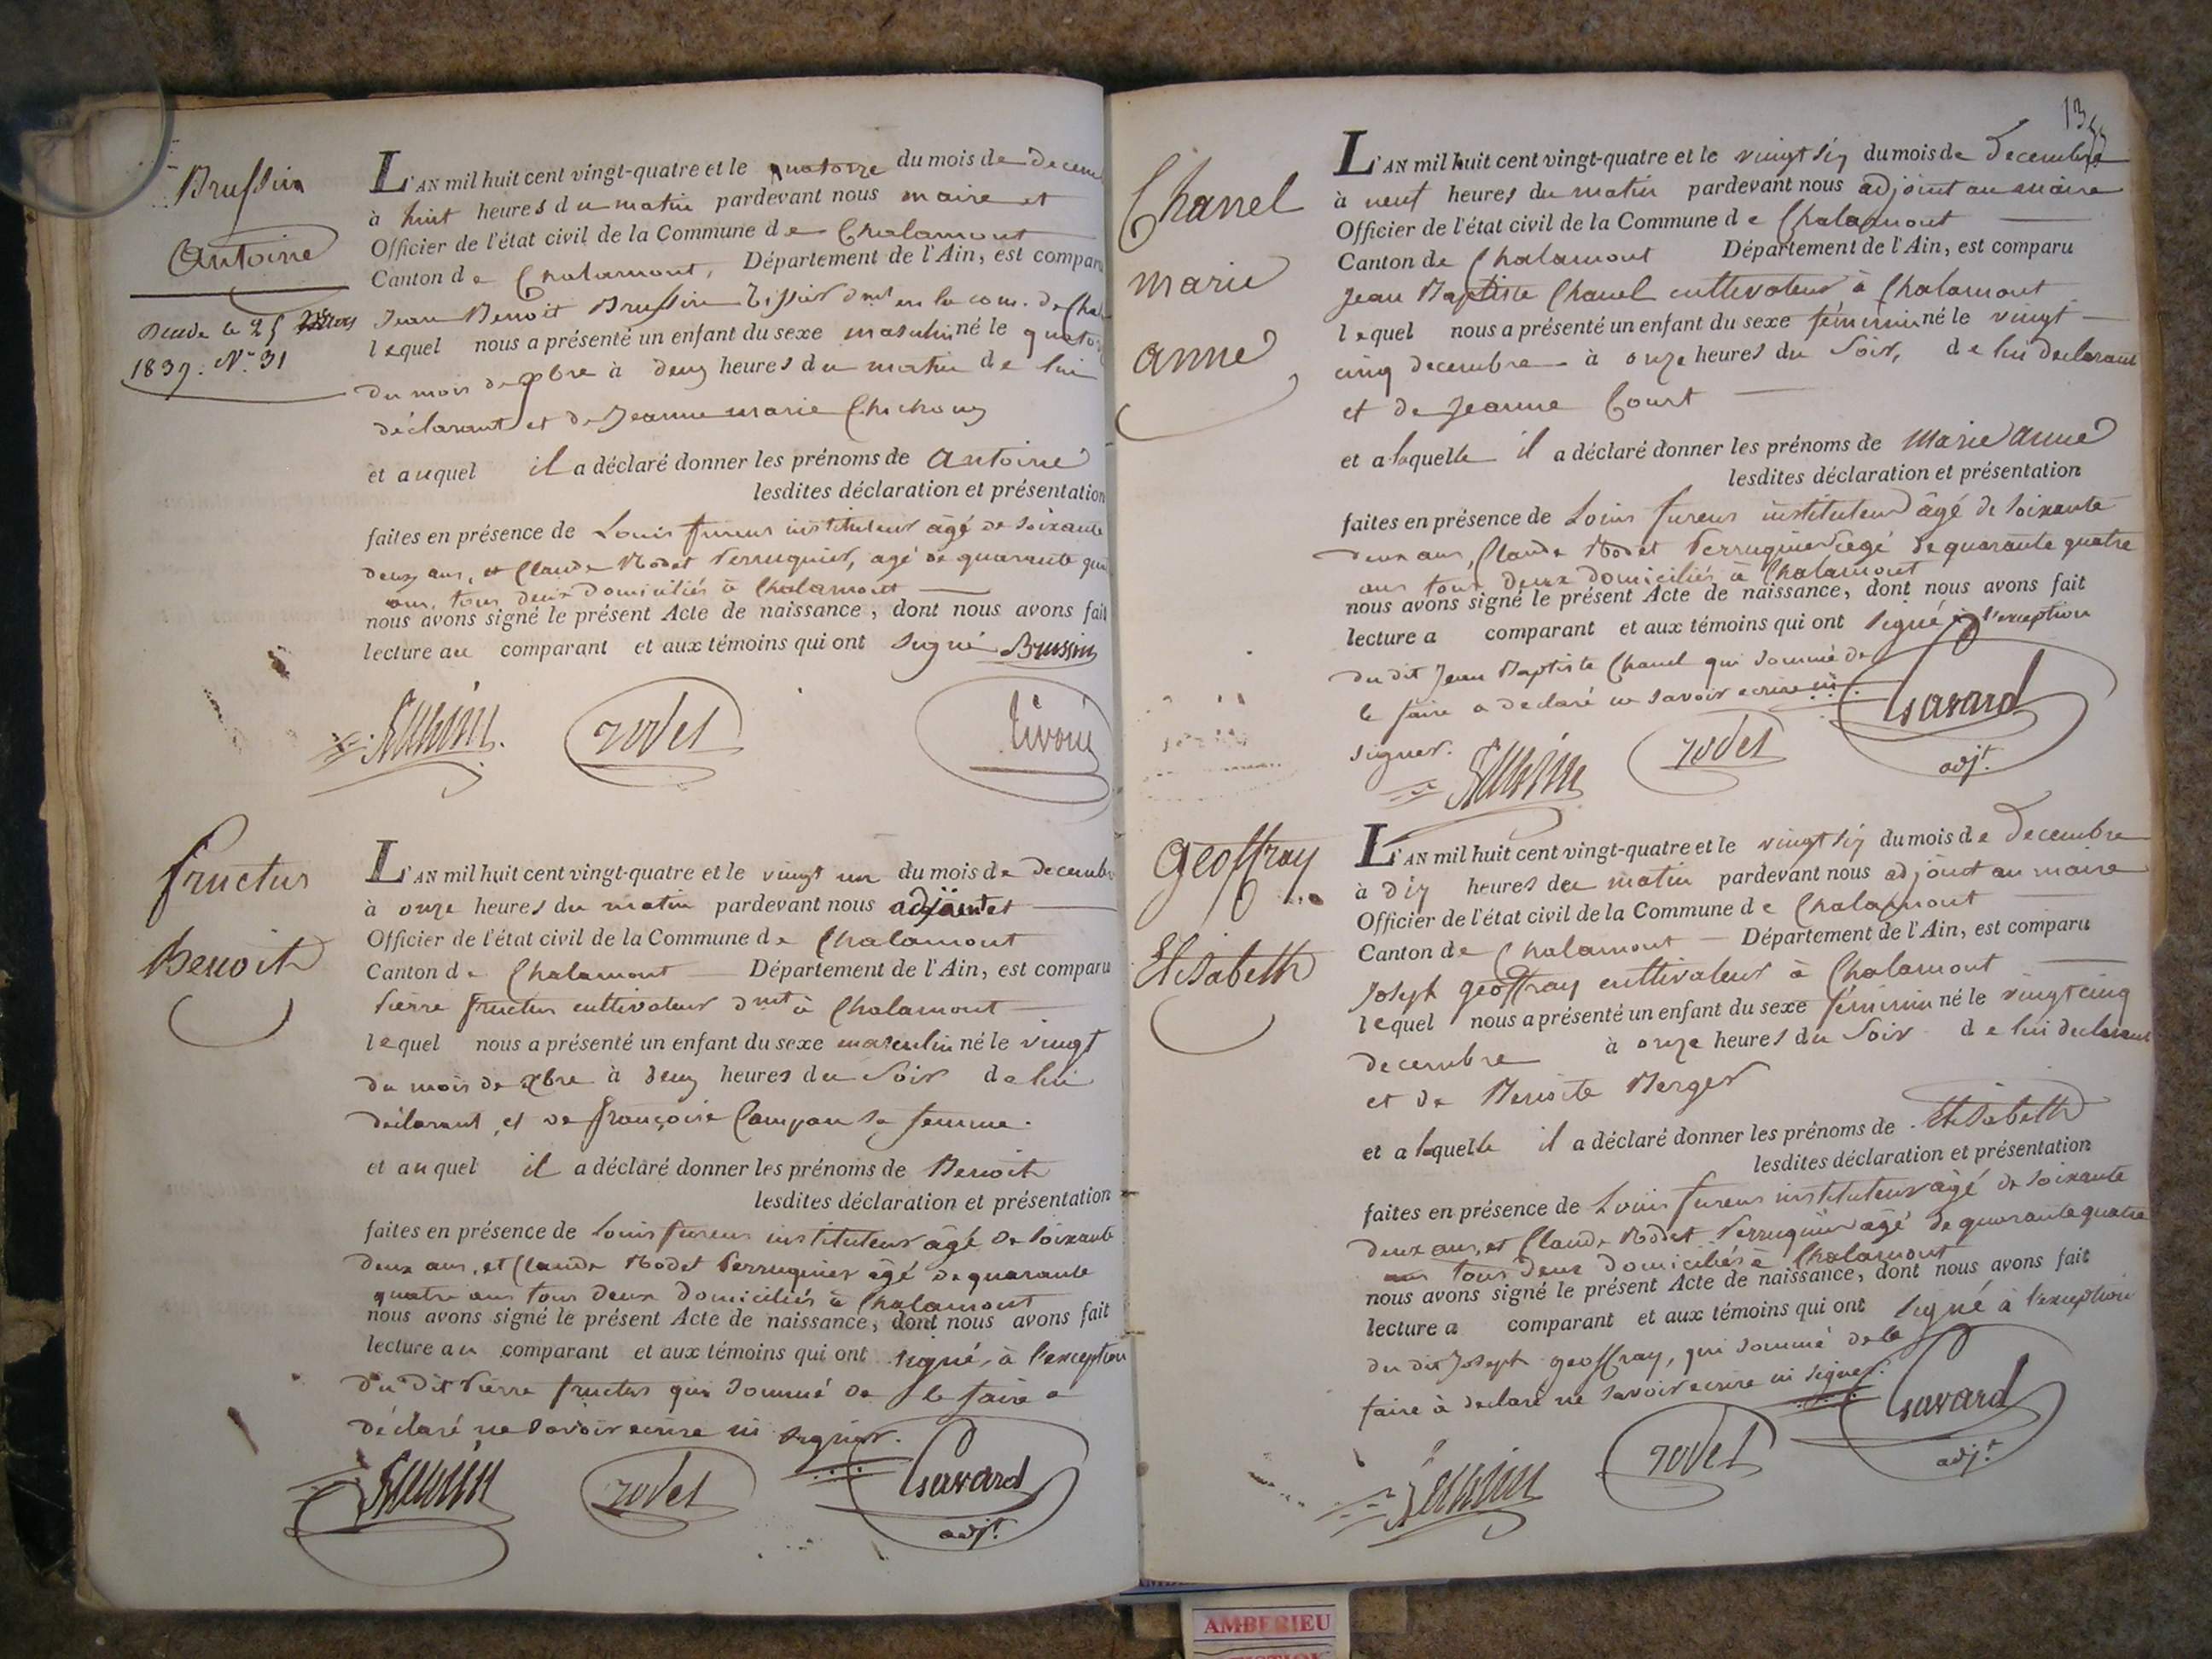 Brussin
Antoine
Décédé le 25 Mars
1839. N° 31
L'AN mil huit cent vingt-quatre et le quatorze du mois de decem
à huit heures du matin pardevant nous maire et
Officier de l'état civil de la Commune de Chalamont
Canton de Chalamont, Département de l'Ain, est comparu
Jean Benoit Brussin tissier dmt en la com. de Chal
lequel nous a présenté un enfant du sexe masculin né le quator
du mois de xbre à deux heures du matin de lui
déclarant et de Jeanne marie Chichoux
et auquel il a déclaré donner les prénoms de Antoine
lesdites déclaration et présentation
faites en présence de Louis fureus instituteur âgé de soixante
deux ans, et Claude Rodet Perruquier, agé de quarante qua
ans, tous deux domiciliés à Chalamont
nous avons signé le présent Acte de naissance, dont nous avons fait
lecture au comparant et aux témoins qui ont signé Brussin
rodet
fructus
Benoit
L'AN mil huit cent vingt-quatre et le vingt un du mois de decembr
à onze heures du matin pardevant nous adjoint et
Officier de l'état civil de la Commune de Chalamont
Canton de Chalamont Département de l'Ain, est comparu
Pierre fructus cultivateur dmt à Chalamont
lequel nous a présenté un enfant du sexe masculin né le vingt
du mois de xbre à deux heures du soir de lui
déclarant, et de françoise Campan sa femme.
et auquel il a déclaré donner les prénoms de Benoit
lesdites déclaration et présentation
faites en présence de Louis fureus instituteur âgé de soixante
deux ans, et Claude Rodet Perruquier âgé de quarante
quatre ans tous deux domiciliés à Chalamont
nous avons signé le présent Acte de naissance, dont nous avons fait
lecture au comparant et aux témoins qui ont signé, à l'exception
du dit Pierre fructus qui sommé de le faire a
déclaré ne savoir ecrire ni signer.
rodet
Savard
adjt.
Chanel
marie
anne
L'AN mil huit cent vingt-quatre et le vingt six du mois de Decembre
à neuf heures du matin pardevant nous adjoint au maire
Officier de l'état civil de la Commune de Chalamont
Canton de Chalamont Département de l'Ain, est comparu
Jean Baptiste Chanel cultivateur à Chalamont
lequel nous a présenté un enfant du sexe féminin né le vingt
cinq decembre à onze heures du soir, de lui declarant
et de Jeanne Court
et a laquelle il a déclaré donner les prénoms de Marie anne
lesdites déclaration et présentation
faites en présence de Louis fureus instituteur âgé de soixante
deux ans, Claude Rodet Perruquier agé de quarante quatre
ans tous deux domiciliés à Chalamont
nous avons signé le présent Acte de naissance, dont nous avons fait
lecture a comparant et aux témoins qui ont signé à l'exception
du dit Jean Baptiste Chanel qui sommé de
le faire a declaré ne savoir ecrire ni
signer.
rodet
Savard
adjt.
Geoffray
Elisabeth
L'AN mil huit cent vingt-quatre et le vingt six du mois de Decembre
à dix heures du matin pardevant nous adjoint au maire
Officier de l'état civil de la Commune de Chalamont
Canton de Chalamont Département de l'Ain, est comparu
Joseph geoffray cultivateur à Chalamont
lequel nous a présenté un enfant du sexe féminin né le vingt cinq
decembre à onze heures du soir de lui declarant
et de Benoite Berger
et a laquelle il a déclaré donner les prénoms de Elisabeth
lesdites déclaration et présentation
faites en présence de Louis fureus instituteur âgé de soixante
deux ans, et Claude Rodet Perruquier âgé de quarante quatre
ans tous deux domiciliés à Chalamont
nous avons signé le présent Acte de naissance, dont nous avons fait
lecture a comparant et aux témoins qui ont signé à l'exception
du dit Joseph geoffray, qui sommé de le
faire à declaré ne savoir ecrire ni signer.
rodet
Savard
adjt.
AMBERIEU